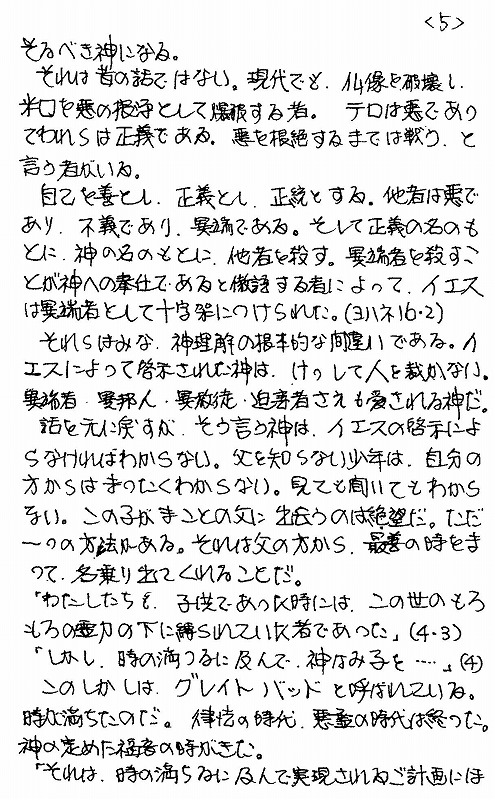 <5>
そるべき神になる。
それは昔の話ではない。現代でも、仏像を破壊し、
米国を悪の根源として爆破する者。 テロは悪であり
てわれらは正義である。悪を根絶するまでは戦う、と
言う者がいる。
自己を善とし、正義とし、正統とする。他者は悪で
あり、不義であり、異端である。そして正義の名のも
とに、神の名のもとに、他者を殺す。異端者を殺すこ
とが神への奉仕であると傲語する者によって、イエス
は異端者として十字架につけられた。(ヨハネ16・2)
それらはみな、神理解の根本的な間違いである。イ
エスによって啓示された神は、けっして人を裁かない。
異端者・異邦人・異教徒・迫害者さえも愛される神だ。
話を元に戻すが、そう言う神は、イエスの啓示によ
らなければわからない。父を知らない少年は、自分の
方からはまったくわからない。見ても聞いてもわから
ない。この子がまことの父に出会うのは絶望だ。ただ
一つの方法がある。それは父の方から、最善の時をま
って、名乗り出てくれることだ。
「わたしたちも、子供であった時には、この世のもろ
もろの霊力の下に縛られていた者であった」(4・3)
「しかし、時の満つるに及んで、神はみ子を……」(4)
このしかしは、グレイト バッド と呼ばれている。
時が満ちたのだ。 律法の時代、悪霊の時代は終った。
神の定めた福音の時がきた。
「それは、時の満ちるに及んで実現されるご計画にほ